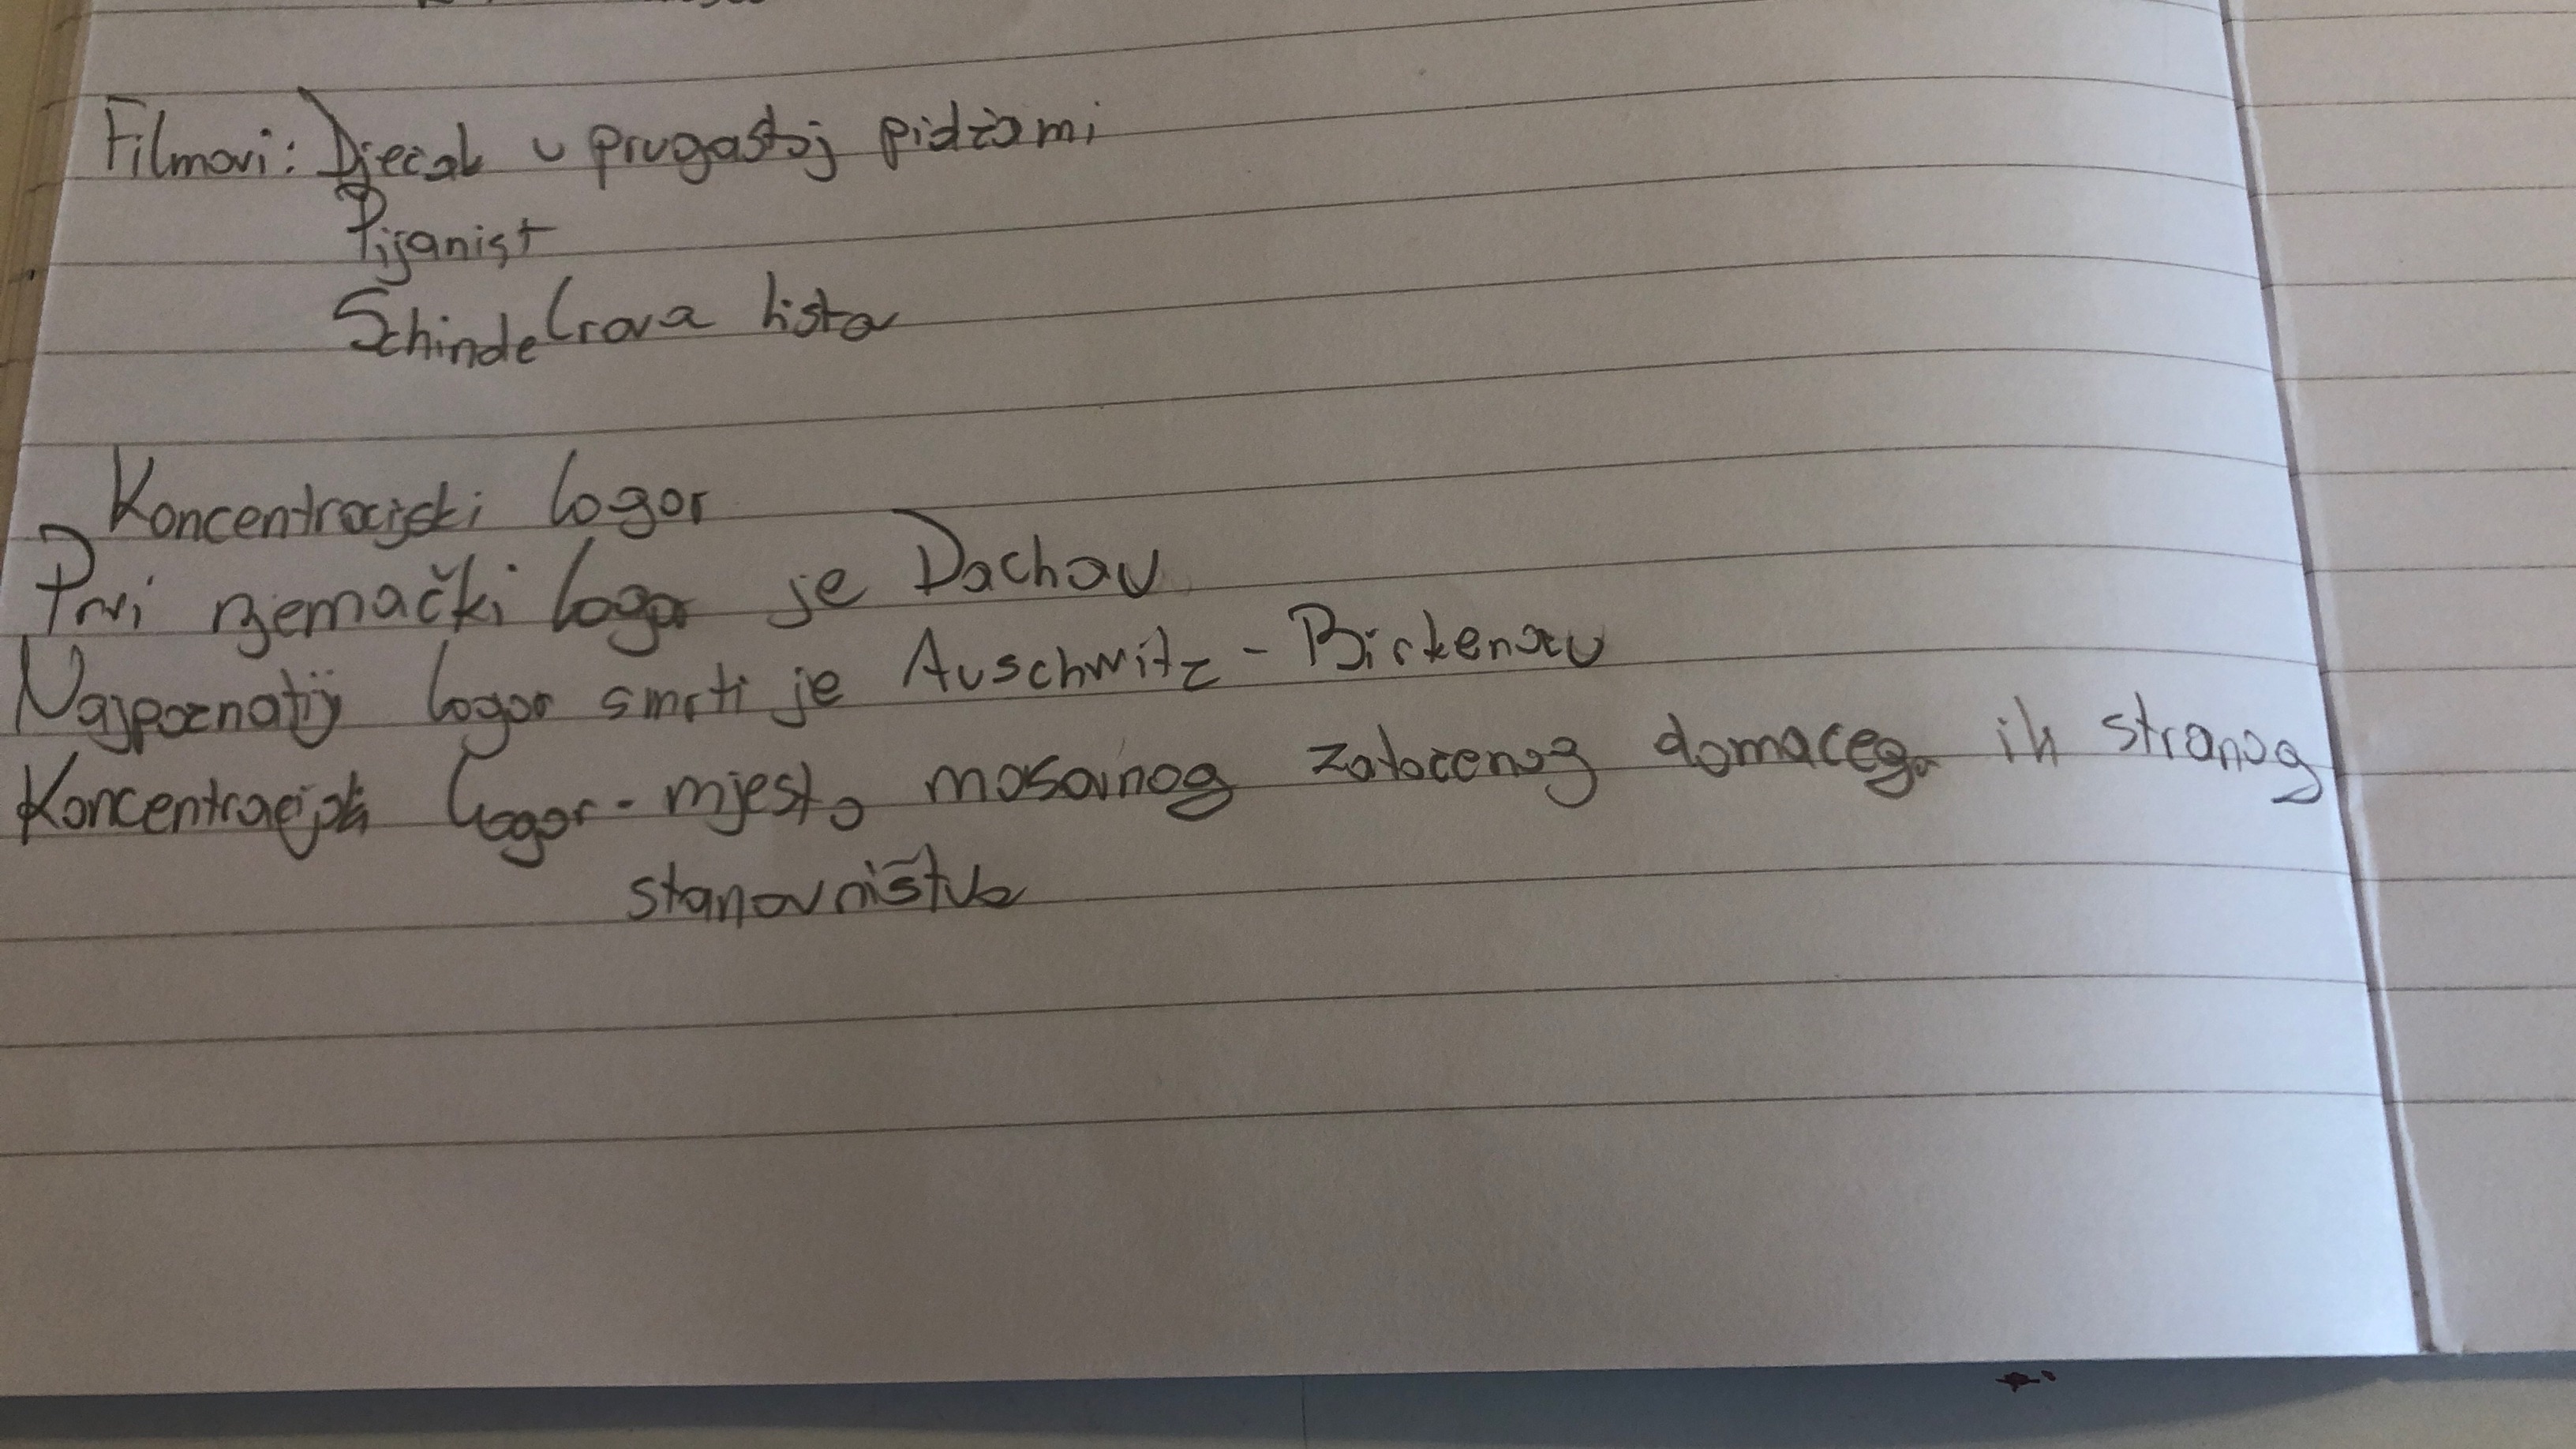 Filmovi: Dječak u prugastoj pidžami
Pijanist
Schindelrova lista
Koncentracijski logor
Prvi njemački logor je Dachau
Najpoznatiji logor smrti je Auschwitz - Birkenau
Koncentracijski logor - mjesto masovnog zatočenog domaceg ili stranog
stanovništva